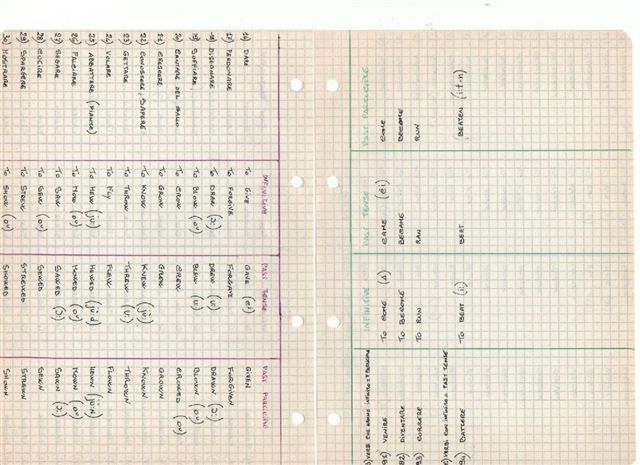 INFINITIVE PAST TENSE PAST PARTICIPLE
16) DARE TO GIVE GAVE (ei) GIVEN
17) PERDONARE TO FORGIVE FORGAVE FORGIVEN
18) DISEGNARE TO DRAW (ɔ:) DREW (u:) DRAWN (ɔ:)
19) SOFFIARE TO BLOW (ou) BLEW (u:) BLOWN (ou)
20) CANTARE DEL GALLO TO CROW CREW CROWED (ou)
21) CRESCERE TO GROW GREW GROWN
22) CONOSCERE, SAPERE TO KNOW KNEW (ju:) KNOWN
23) GETTARE TO THROW THREW (u:) THROWN
24) VOLARE TO FLY FLEW FLOWN
25) ABBATTERE (PIANTE) TO HEW (ju:) HEWED (ju:d) HEWN (ju:n)
26) FALCIARE TO MOW (ou) MOWED (ou) MOWN (ou)
27) SEGARE TO SAW SAWED (ɔ:) SAWN (ɔ:)
28) CUCIRE TO SEW (ou) SEWED SEWN
29) SPARGERE TO STREW STREWED STREWN
30) MOSTRARE TO SHOW (ou) SHOWED SHOWN
INFINITIVE PAST TENSE PAST PARTICIPLE
91) VENIRE TO COME (ʌ) CAME (ei) COME
92) DIVENTARE TO BECOME BECAME BECOME
93) CORRERE TO RUN RAN RUN
VERBI CON INFINITO = PAST TENSE
94) BATTERE TO BEAT (i:) BEAT BEATEN (i:t·n)